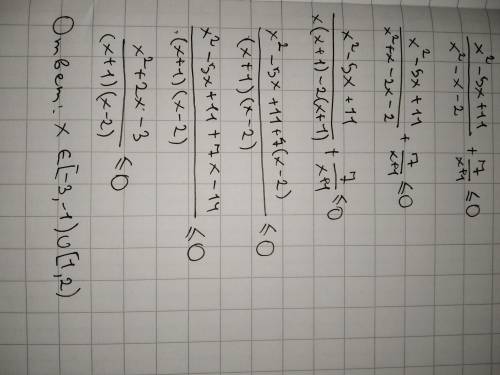 (x² - 5x + 11)/(x² - x - 2) + 7/(x+1) ≤ 0
(x² - 5x + 11)/(x² + x - 2x - 2) + 7/(x+1) ≤ 0
(x² - 5x + 11)/(x(x+1) - 2(x+1)) + 7/(x+1) ≤ 0
(x² - 5x + 11 + 7(x-2))/((x+1)(x-2)) ≤ 0
(x² - 5x + 11 + 7x - 14)/((x+1)(x-2)) ≤ 0
(x² + 2x - 3)/((x+1)(x-2)) ≤ 0
Ответ: x ∈ [-3, -1) ∪ [1, 2)